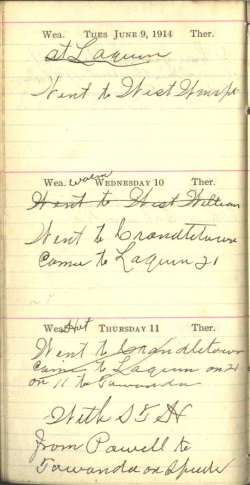 Wea. TUES JUNE 9, 1914 Ther.
at Laquin
Went to West Wmspt
Wea. Warm WEDNESDAY 10 Ther.
Went to West William
Went to Crandletown
Came to Laquin 21
Wea. Hot THURSDAY 11 Ther.
Went to Crandletown
Came to Laquin on 21
on 11 to Towanda
With S T H
from Powell to
Towanda on Speeder